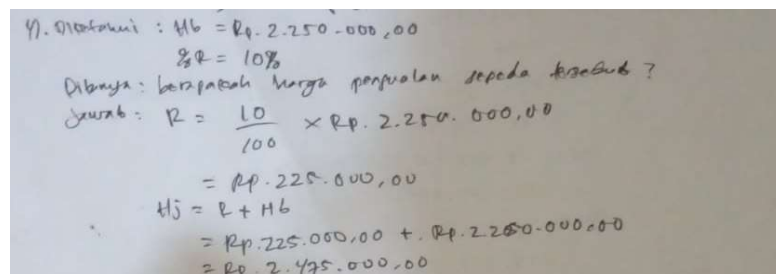 4). Diketahui : Hb = Rp. 2.250.000,00
%R = 10%
Ditanya : berapakah harga penjualan sepeda tersebut ?
Jawab : R = 10/100 × Rp. 2.250.000,00
= Rp. 225.000,00
Hj = R + Hb
= Rp. 225.000,00 + Rp. 2.250.000,00
= Rp. 2.475.000,00